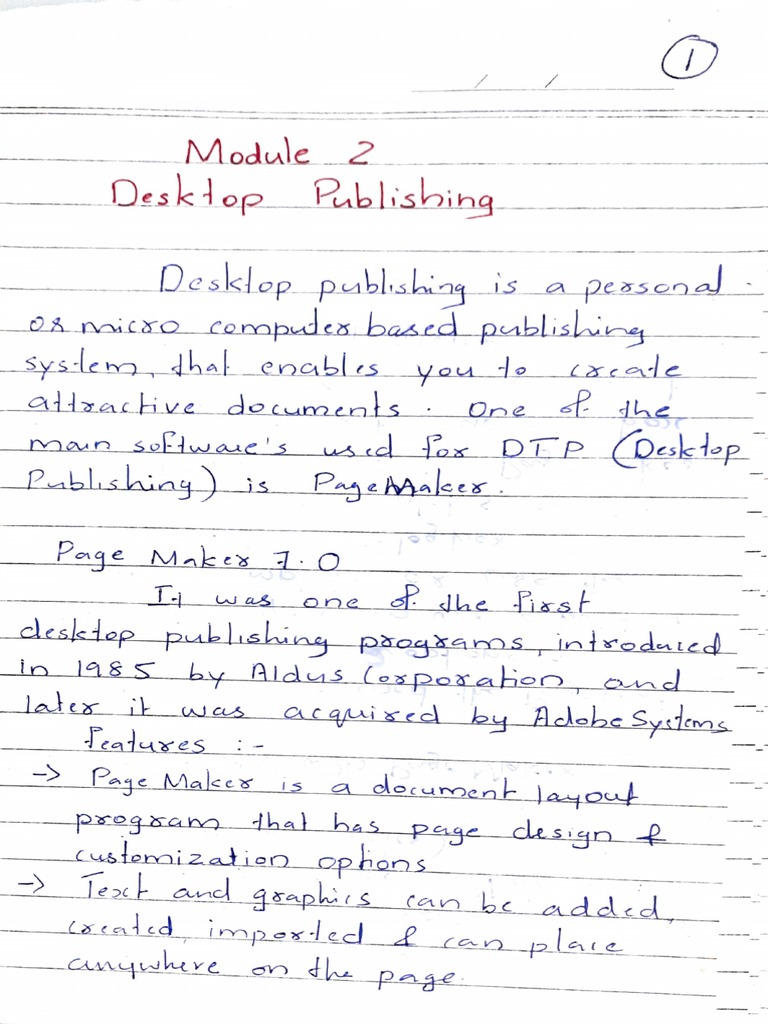 1
/ /
Module 2
Desktop Publishing
Desktop publishing is a personal
or micro computer based publishing
system, that enables you to create
attractive documents. One of the
main software's used for DTP (Desktop
Publishing) is PageMaker.
Page Maker 7.0
It was one of the first
desktop publishing programs, introduced
in 1985 by Aldus Corporation, and
later it was acquired by Adobe Systems
Features :-
→ Page Maker is a document layout
program that has page design &
customization options
→ Text and graphics can be added,
created, imported & can place
anywhere on the page.